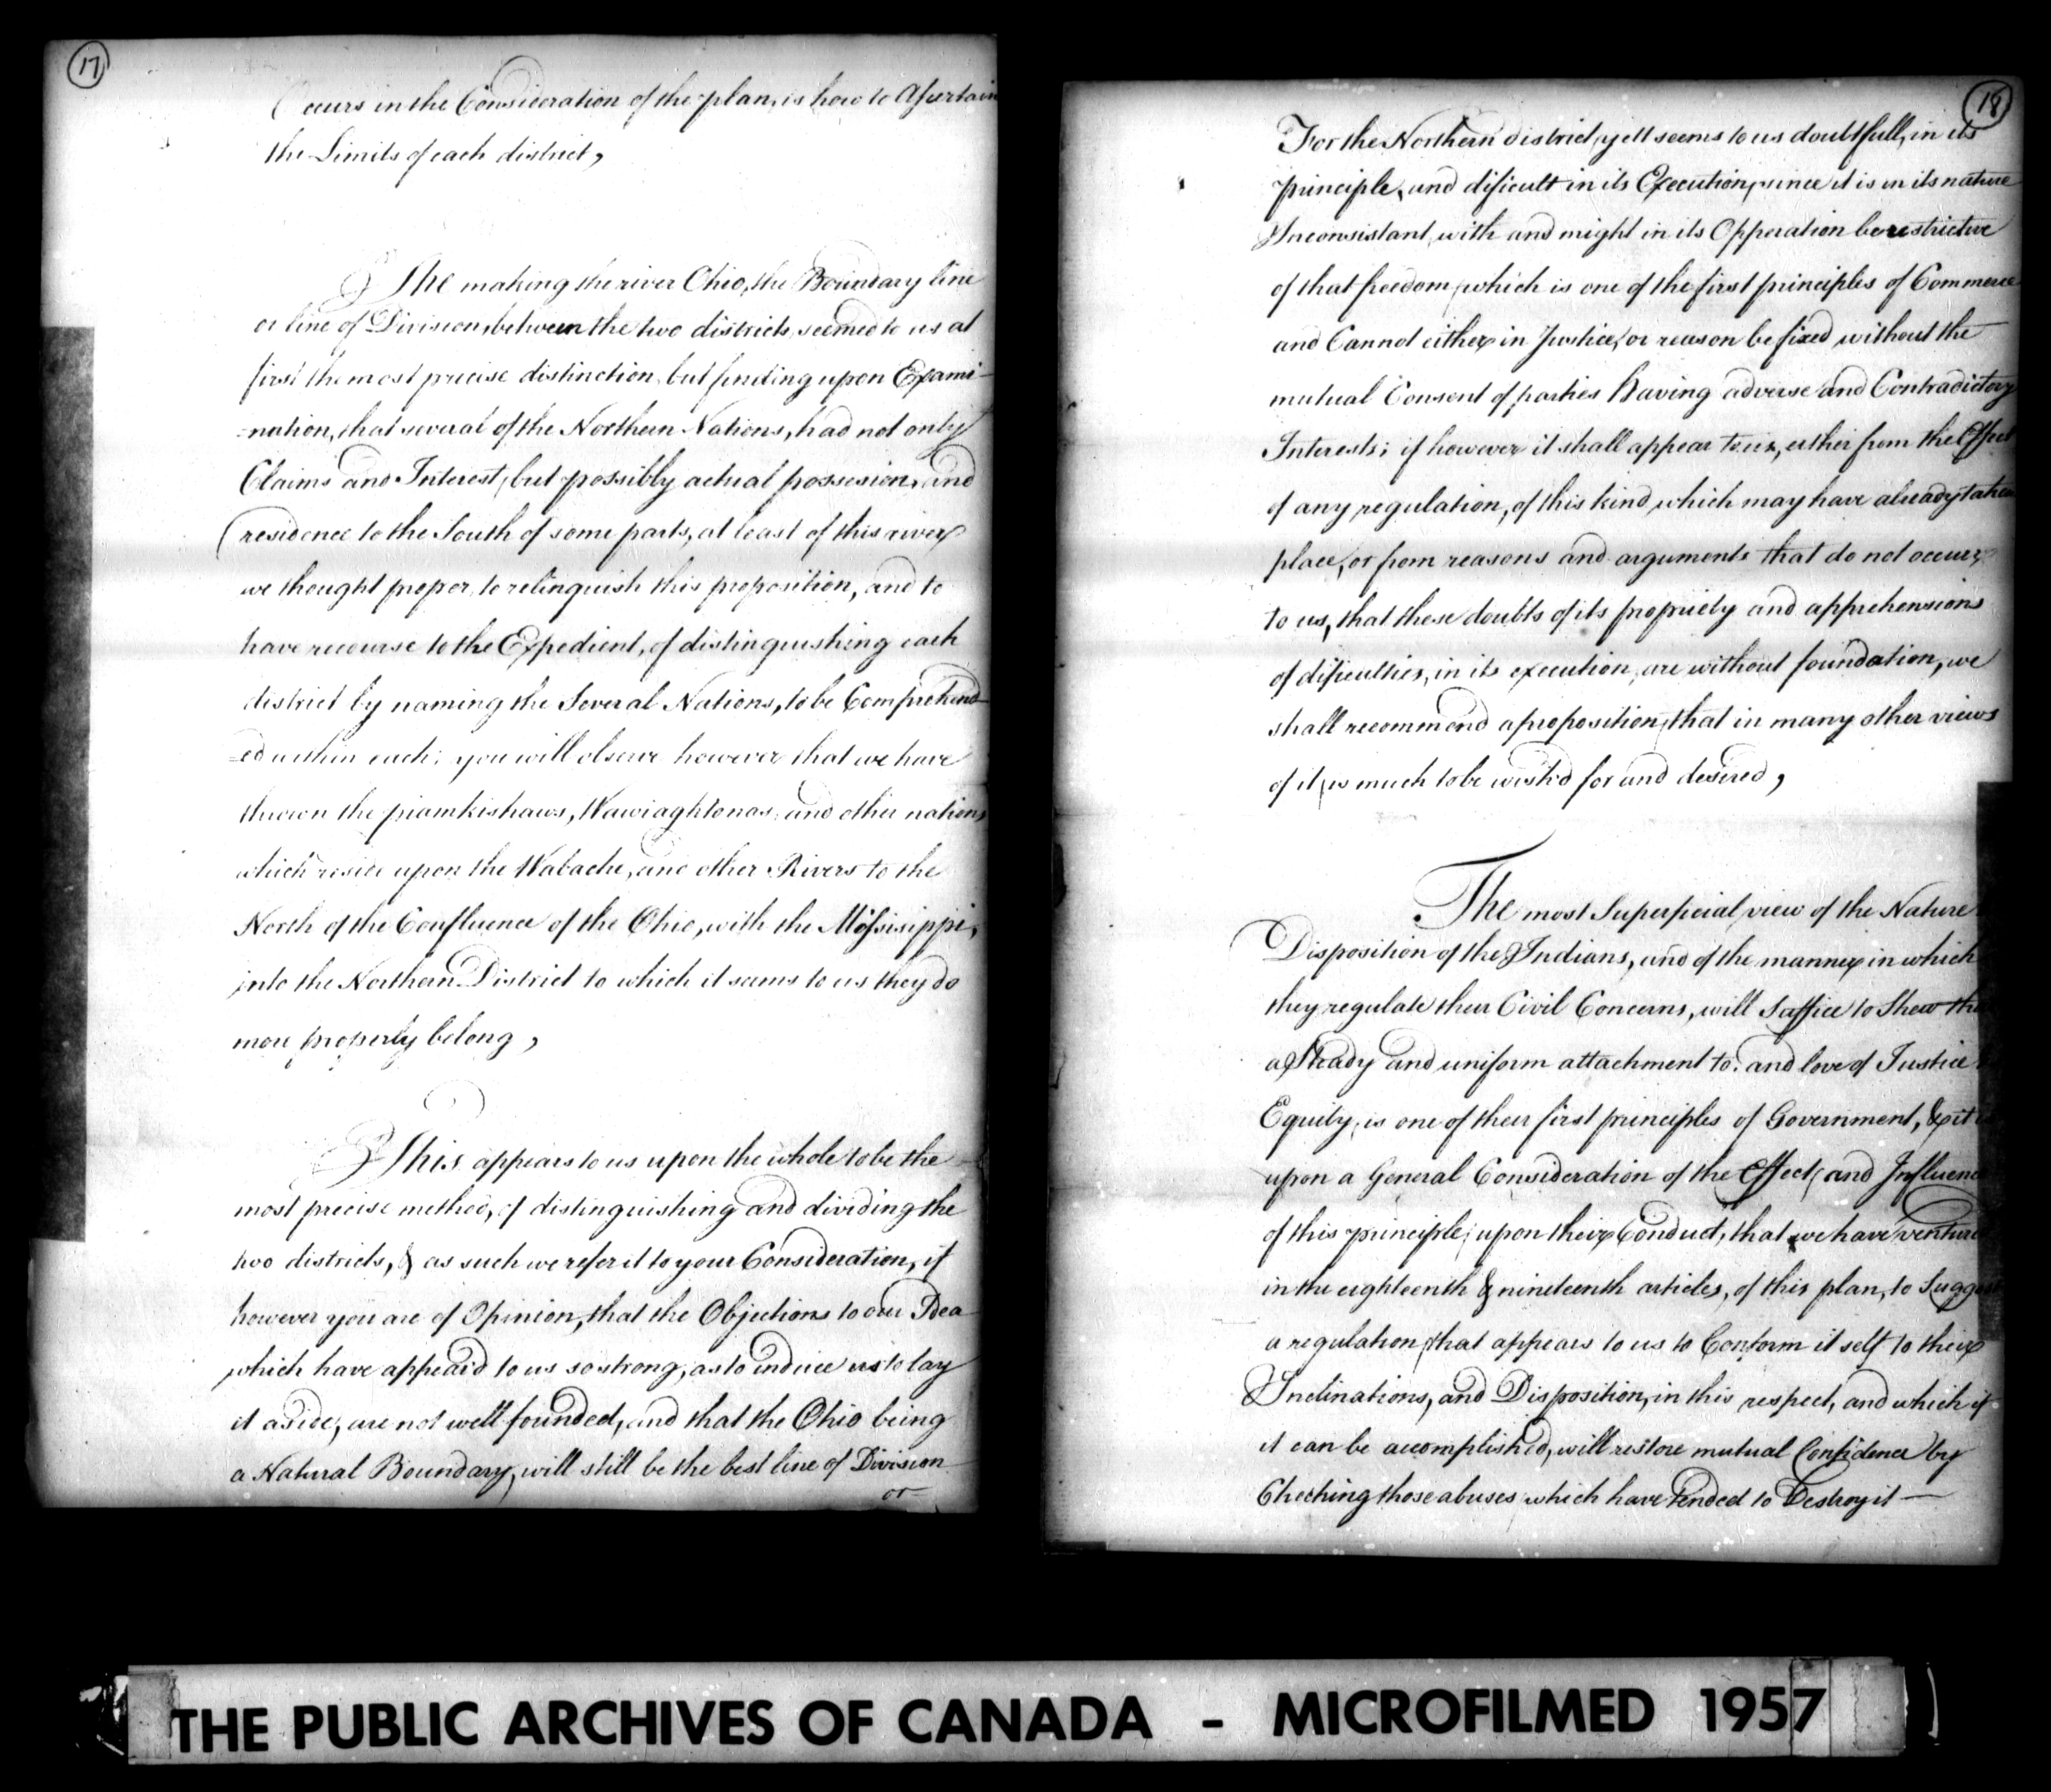 17
Occurs in the Consideration of the plan, is how to Assertain
the Limits of each district,
The making the river Ohio, the Boundary line
or line of Division, between the two districts, seemed to us at
first the most precise distinction, but finding upon Exami-
-nation, that several of the Northern Nations, had not only
Claims and Interest, but possibly actual possesion, and
residence to the South of some parts, at least of this river
we thought proper, to relinquish this proposition, and to
have recourse to the Expedient, of distinguishing each
district by naming the Several Nations, to be Comprehend-
-ed within each; you will observe however that we have
thrown the piamkishaws, Wawiaghtonas, and other nations
which reside upon the Wabache, and other Rivers to the
North of the Confluence of the Ohio, with the Missisippi,
into the Northern District to which it seems to us they do
more properly belong,
This appears to us upon the whole to be the
most precise method, of distinguishing and dividing the
two districts, & as such we refer it to your Consideration, if
however you are of Opinion, that the Objections to our Idea
which have appear'd to us so strong, as to induce us to lay
it aside, are not well founded, and that the Ohio being
a Natural Boundary, will still be the best line of Division
or
18
For the Northern district, yett seems to us doubtfull, in its
principle, and dificult in its Execution, since it is in its nature
Inconsistant, with and might in its Opperation be restrictive
of that freedom, which is one of the first principles of Commerce
and Cannot either in Justice, or reason be fixed without the
mutual Consent of parties having adverse and Contradictory
Interests; if however it shall appear to us, either from the Effect
of any regulation, of this kind, which may have already taken
place, or from reasons and arguments that do not occur,
to us, that these doubts of its propriety and apprehensions
of dificulties, in its execution, are without foundation, we
shall recommend a proposition, that in many other views
of it, is much to be wish'd for and desired,
The most Superficial view of the Nature
Disposition of the Indians, and of the manner in which
they regulate their Civil Concerns, will Suffice to Shew
a Steady and uniform attachment to, and love of Justice
Equity, is one of their first principles of Government, & it
upon a General Consideration of the Effect, and Influence
of this principle, upon their Conduct, that we have
in the eighteenth & nineteenth articles, of this plan, to Suggest
a regulation, that appears to us to Conform it self to their
Inclinations, and Disposition, in this respect, and which if
it can be accomplished, will restore mutual Confidence by
Checking those abuses which have tended to Destroy it —
THE PUBLIC ARCHIVES OF CANADA - MICROFILMED 1957